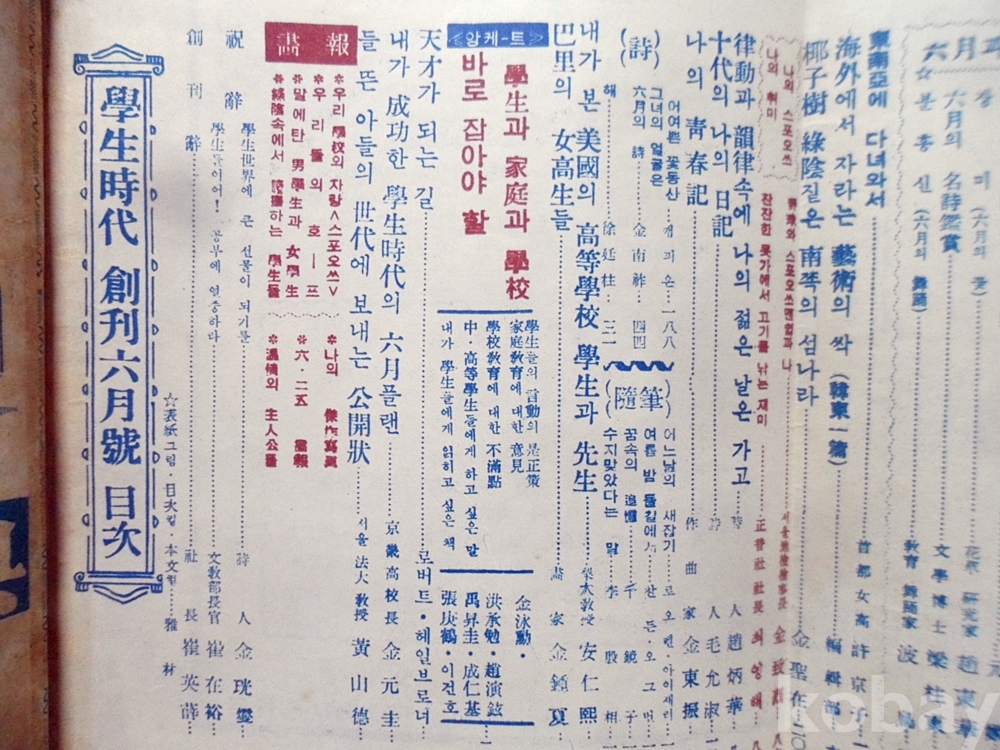 學生時代 創刊六月號 目次
☆表紙그림・目次컽・本文컽……雅材
創刊辭……社長 崔英薛
祝辭
學生들이어! 공부에 열중하라……文敎部長官 崔在裕
學生世界에 큰 선물이 되기를……詩人 金珖燮
畵報
*우리 學校의 자랑<스포오쓰>
*우리들의 호ー프
*말에탄 男學生과 女學生
*綠陰속에서 讀書하는 學生들
*나의 傑作寫眞
*六・二五 畵報
*溫情의 主人公들
들뜬 아들의 世代에 보내는 公開狀……서울法大敎授 黃山德
내가 成功한 學生時代의 六月플랜……京畿高校長 金元圭
天才가 되는 길……로버트・헤일브로너
<앙케ー트>
學生과 家庭과 學校
바로 잡아야 할
學生들의 言動의 是正策
家庭敎育에 대한 意見
學校敎育에 대한 不滿點
中・高等學生들에게 하고 싶은 말
내가 學生들에게 읽히고 싶은 책
金泳勳・
洪承勉・趙演鉉
禹昇圭・成仁基
張庚鶴・이건호
巴里의 女高生들……畵家 金鍾夏
내가 본 美國의 高等學校 學生과 先生……梨大敎授 安仁熙
(詩)
해……徐廷柱・三一
六月의 詩……金南祚・四四
그녀의 얼굴은
어여쁜 꽃동산……캠피온……一八八
(隨筆)
수지맞았다는 말……李殷相
꿈속의 追憶……千鏡子
여름 밤 들길에서……잔든・오그먼
어느날의 새잡기……로오렌・아이제리
나의 靑春記……作曲家 金東振
十代의 나의 日記……詩人 毛允淑
律動과 韻律속에 나의 젊은 날은 가고……詩人 趙炳華
나의 취미
나의 스포오쓰
잔잔한 못가에서 고기를 낚는 재미……正音社社長 최영해
野球와 스포오쓰맨쉽과 나
椰子樹 綠陰질은 南쪽의 섬나라……金聖在
海外에서 자라는 藝術의 싹 (韓東一篇)……編輯部
東南亞에 다녀와서……首都女高 許京子
☆분홍신 (六月의 舞踊)……敎育舞踊家
六月의 名詩鑑賞……文學博士 梁柱東
장미 (六月의 꽃)……花卉硏究家
六月
kobay